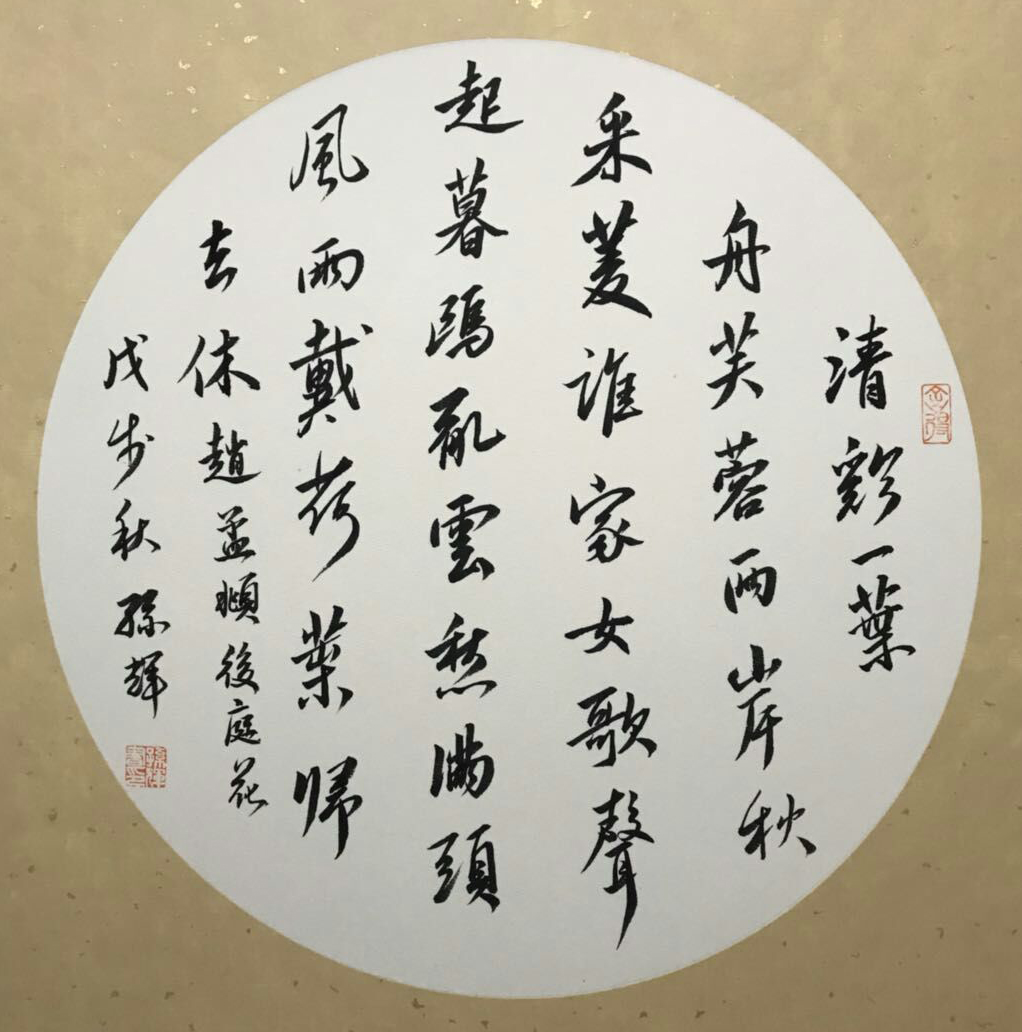 清谿一葉
舟芙蓉兩岸秋
采菱誰家女歌聲
起暮鷗亂雲愁滿頭
風雨戴荷葉歸
去休趙孟頫後庭花
戊戌秋孫輝